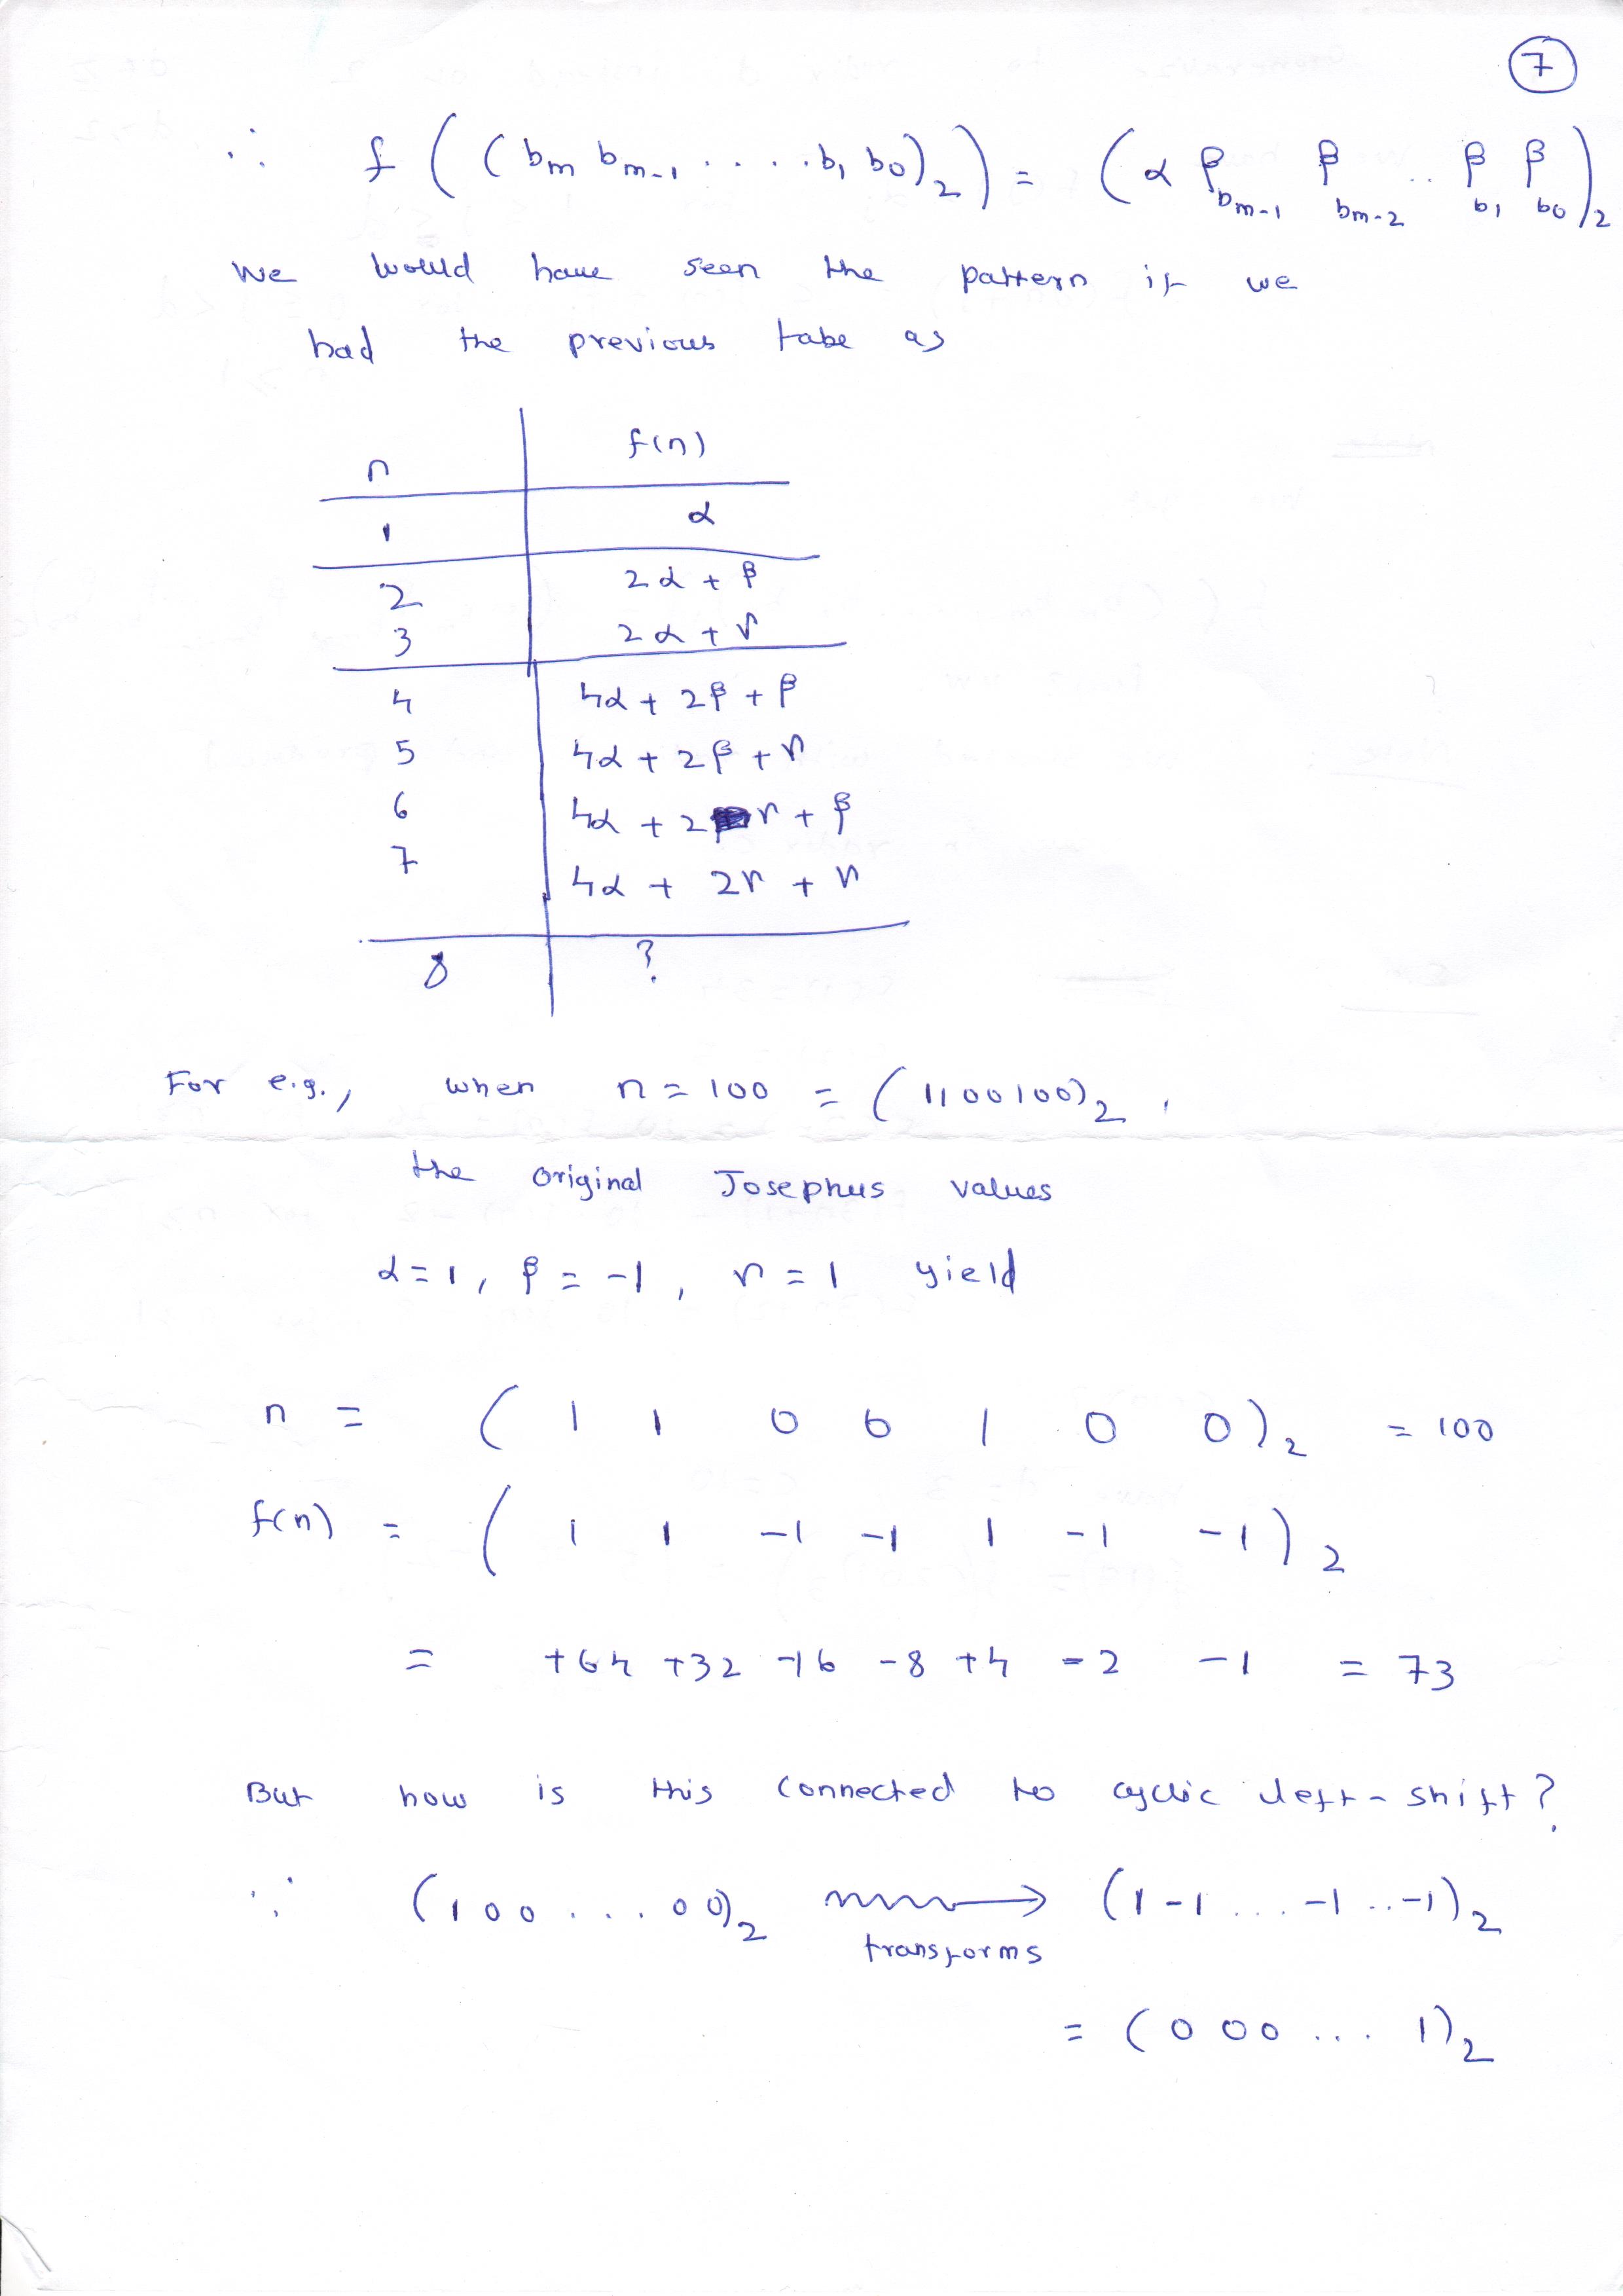 7
∴ f ( ( bm bm-1 . . . . . b1 b0)2 ) = ( α βbm-1 βbm-2 .. βb1 βb0 )2
we would have seen the pattern if we
had the previous tabe as
n f(n)
1 α
2 2α + β
3 2α + γ
4 4α + 2β + β
5 4α + 2β + γ
6 4α + 2γ + β
7 4α + 2γ + γ
8 ?
For e.g., when n = 100 = ( 1100100)2 ,
the original Josephus values
α = 1, β = -1, γ = 1 yield
n = ( 1 1 0 0 1 0 0 )2 = 100
f(n) = ( 1 1 -1 -1 1 -1 -1 )2
= +64 +32 -16 -8 +4 -2 -1 = 73
But how is this connected to cyclic left-shift?
∵ (100 . . . 00)2 transforms → (1 -1 ... -1 ..-1)2
= (000 ... 1)2